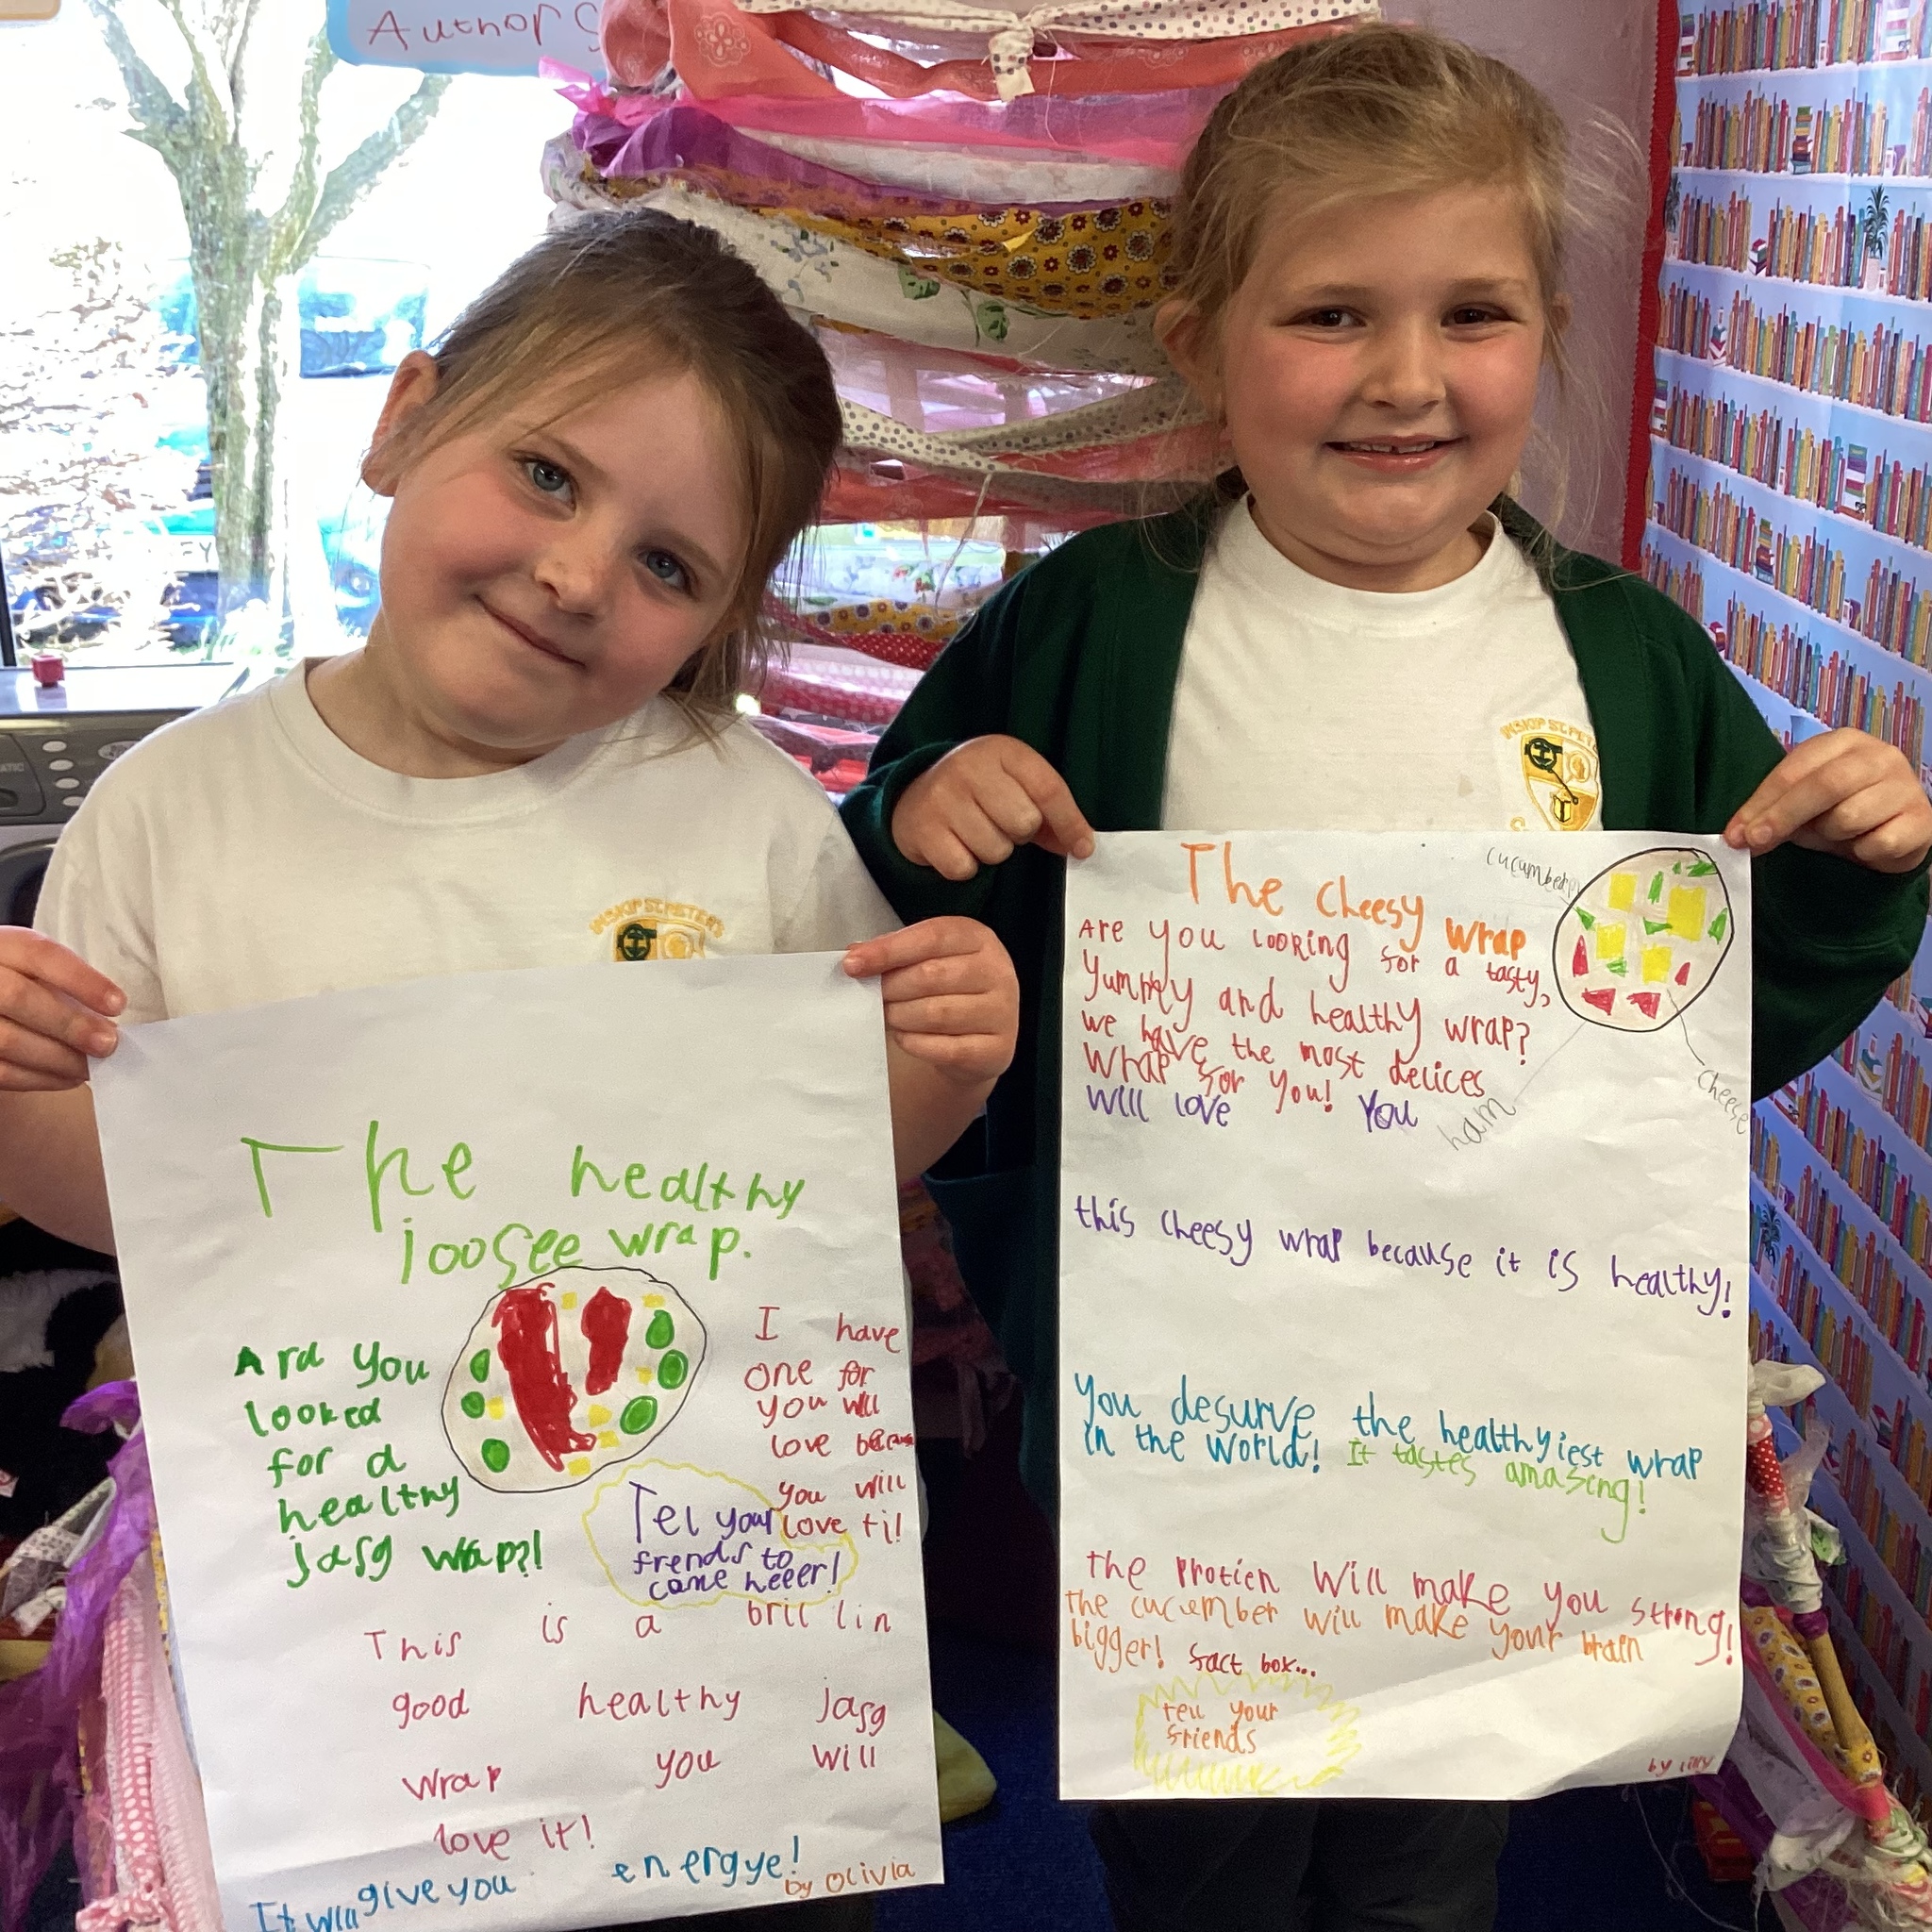 Author
INSKIP ST.PETER'S
The healthy
joosee wrap.
Ard you
looked
for a
healthy
jasg wrap?!
I have
one for
you will
love because
you will
love ti!
Tel your
frends to
came heeer!
This is a brillin
good healthy jasg
wrap you will
love it!
It will give you energye!
by Olivia
INSKIP ST.PETE
The cheesy wrap
cucumber
Are you looking for a tasty,
yummy and healthy wrap?
we have the most delices
wrap for you! You
will love
ham
cheese
this cheesy wrap because it is healthy!
You desurve the healthyiest wrap
in the world! It tastes amaseng!
the protien will make you strong!
the cucumber will make your brain
bigger! fact box...
tell your
friends
by lilly